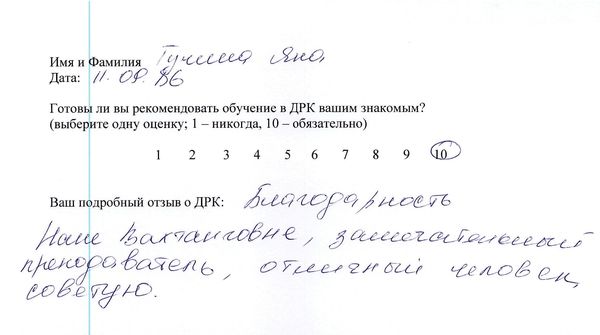 Имя и Фамилия Гучина Яна
Дата: 11.09.
Готовы ли вы рекомендовать обучение в ДРК вашим знакомым?
(выберите одну оценку; 1 – никогда, 10 – обязательно)
1 2 3 4 5 6 7 8 9 10
Ваш подробный отзыв о ДРК: Благодарность
Вахтанговне, замечательный
преподаватель, отличный человек,
советую.